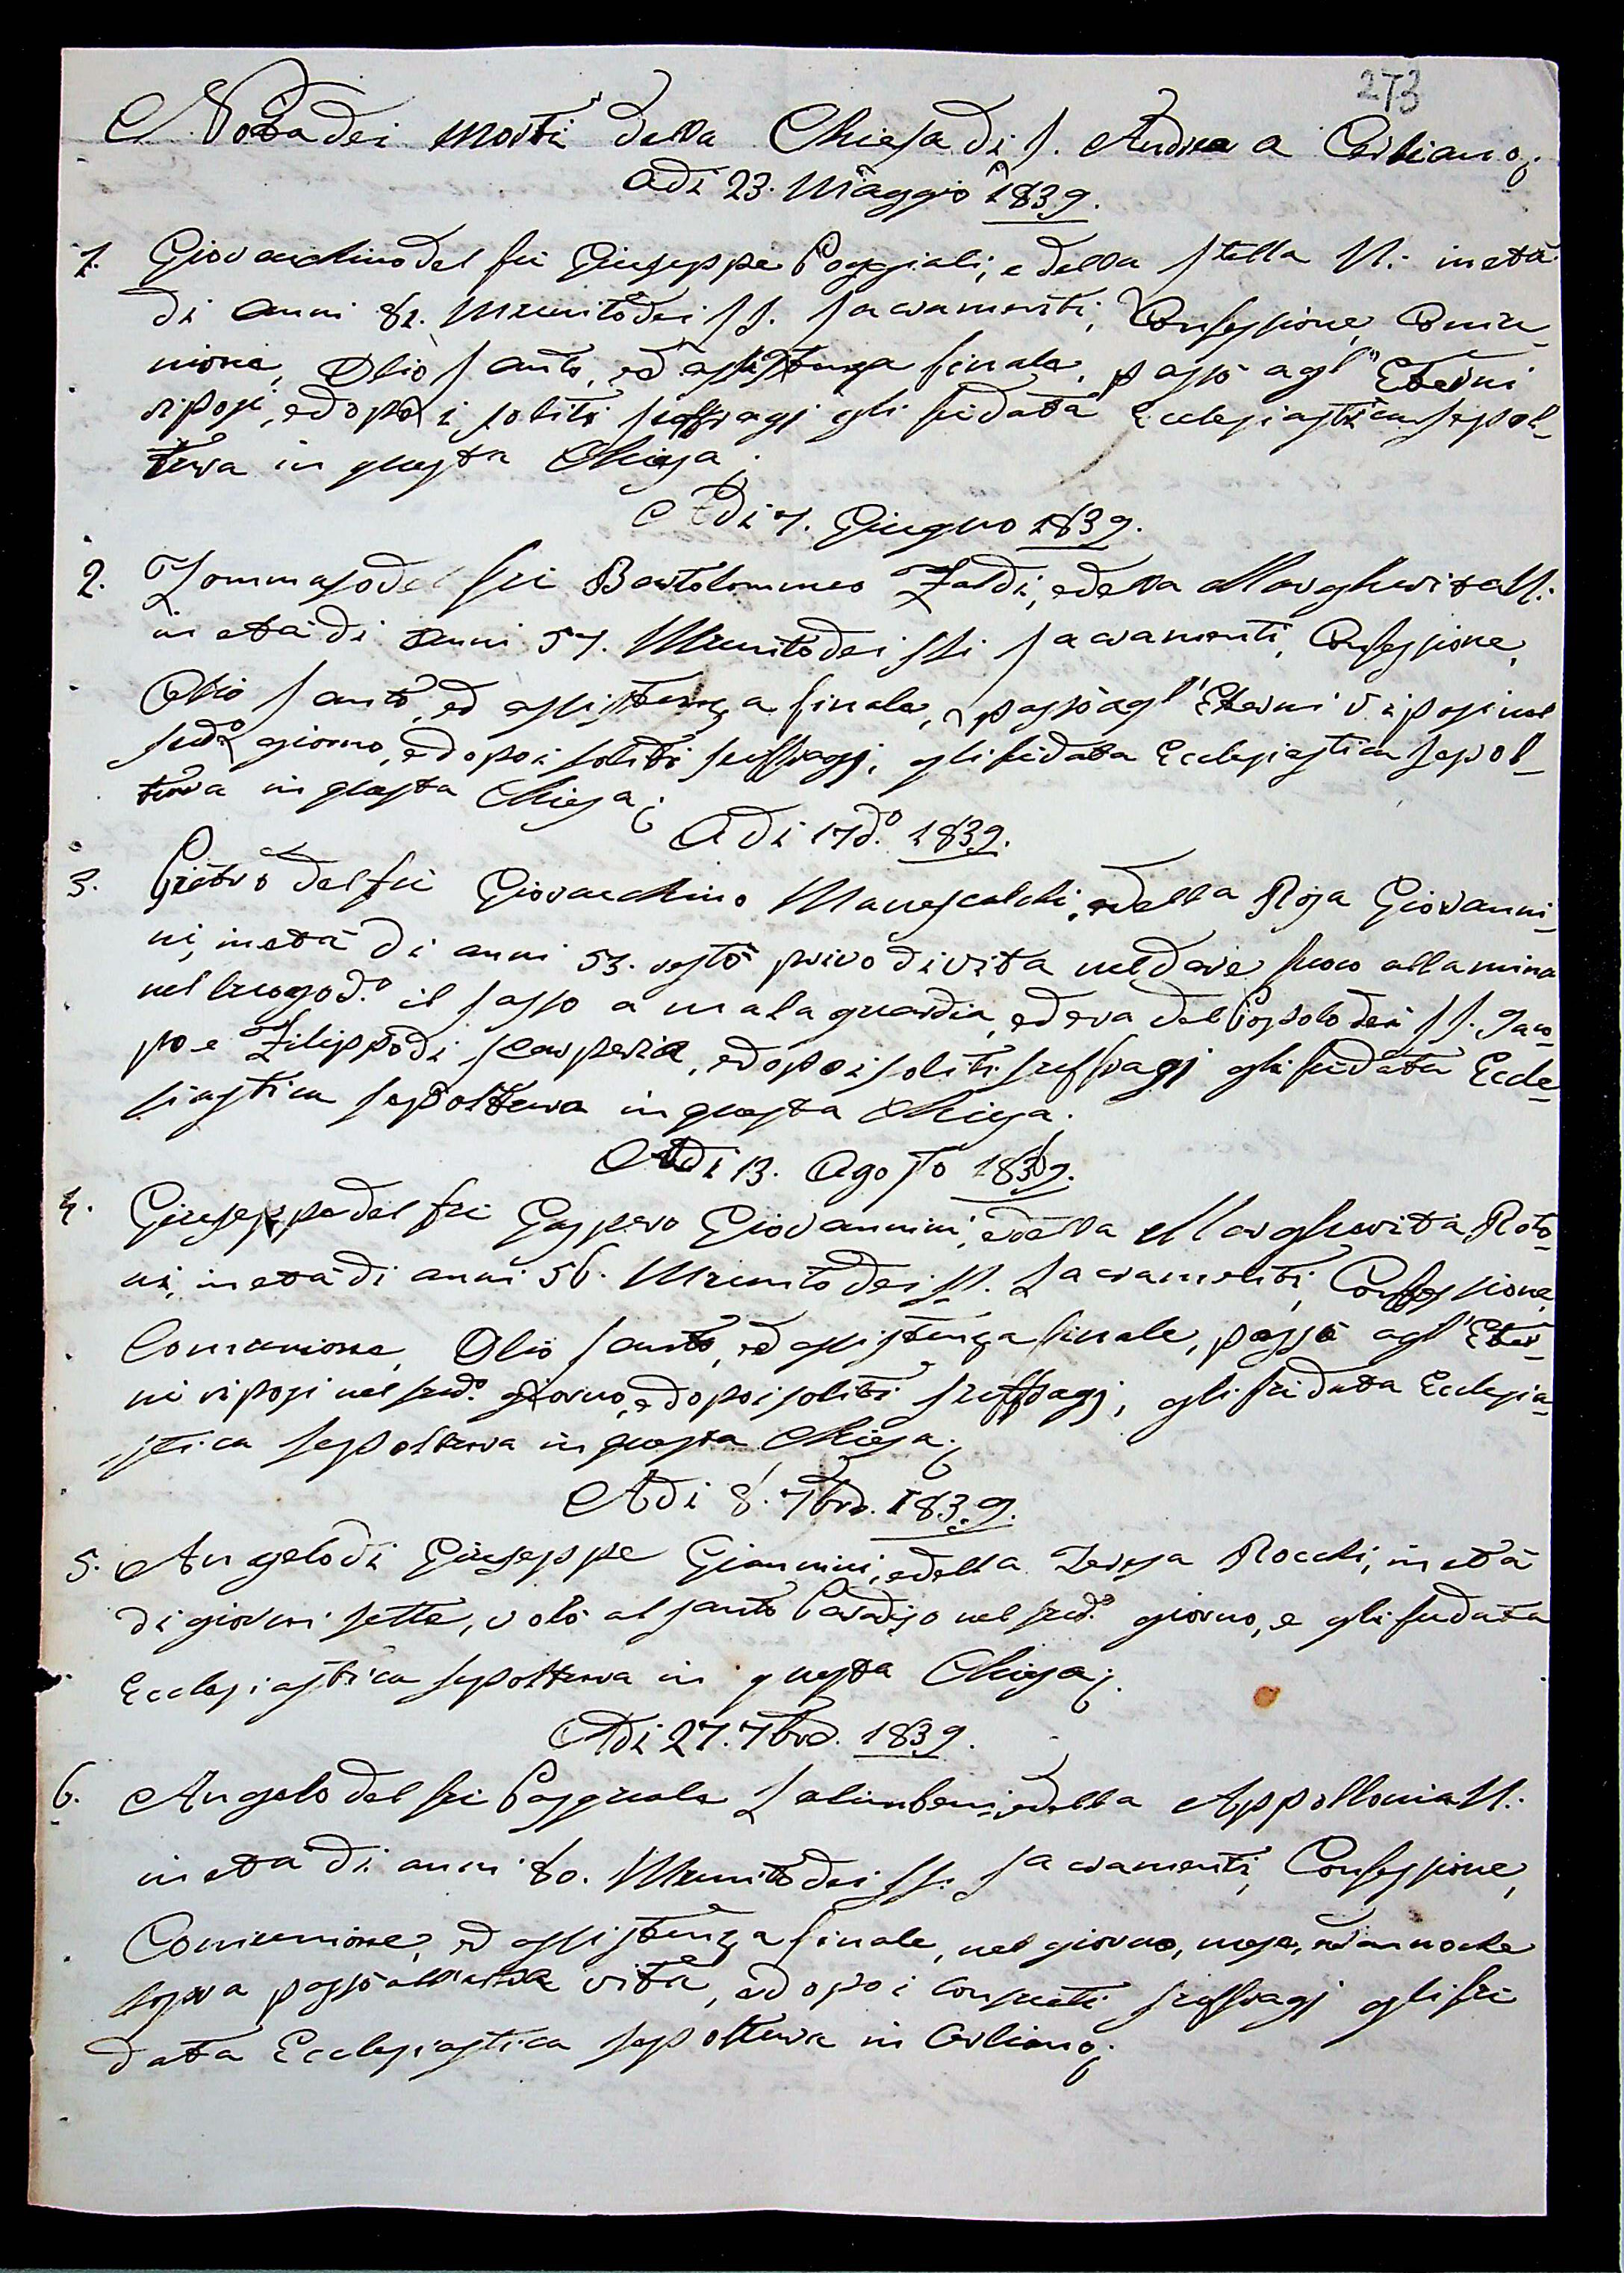 273
Nota dei Morti della Chiesa di S. Andrea a Cerliano.
Adi 23. Maggio 1839.
1. Giovacchino del fu Giuseppe Poggiali, e della Stella N: in età
di anni 81. Munito dei SS. Sacramenti, Confessione, Comu-
nione, Olio Santo, ed assistenza finale, passò agl' Eterni
riposi, e dopo i soliti suffragj gli fu data Ecclesiastica sepol-
tura in questa Chiesa;
Adi 7. Giugno 1839.
2. Tommaso del fu Bartolommeo Faldi, e della Margherita N:
in età di anni 57. Munito dei SSi Sacramenti, Confessione,
Olio Santo, ed assistenza finale, passò agl' Eterni riposi nel
sudo giorno, e dopo i soliti suffragj, gli fu data Ecclesiastica sepol-
tura in questa Chiesa;
Adi 17 do. 1839.
3. Pietro del fu Giovacchino Manescalchi, e della Rosa Giovanni-
ni, in età di anni 53. restò privo di vita nel dare fuoco alla mina
nel luogo do. il sasso a mala guardia, ed era del Popolo dei SS. Jaco-
po e Filippo di Scarperia, e dopo i soliti suffragj gli fu data Eccle-
siastica sepoltura in questa Chiesa;
Adi 13. Agosto 1839.
4. Giuseppe del fu Gaspero Giovannini, e della Margherita Roto-
ni, in età di anni 56. Munito dei SS. Sacramenti, Confessione,
Comunione, Olio Santo, ed assistenza finale, passò agl' Eter-
ni riposi nel sudo. giorno, e dopo i soliti suffragj, gli fu data Ecclesia-
stica sepoltura in questa Chiesa;
Adi 8. 7bre. 1839.
5. Angelo di Giuseppe Giannini, e della Teresa Rocchi, in età
di giorni sette, volò al santo Paradiso nel sudo. giorno, e gli fu data
Ecclesiastica sepoltura in questa Chiesa;
Adi 27. 7bre. 1839.
6. Angelo del fu Pasquale Salimbeni, e della Appollonia N:
in età di anni 80. Munito dei SS. Sacramenti, Confessione,
Comunione, ed assistenza finale, nel giorno, mese, ed anno che
sopra passò all'altra vita, e dopo i consueti suffragj gli fu
data Ecclesiastica sepoltura in Cerliano;